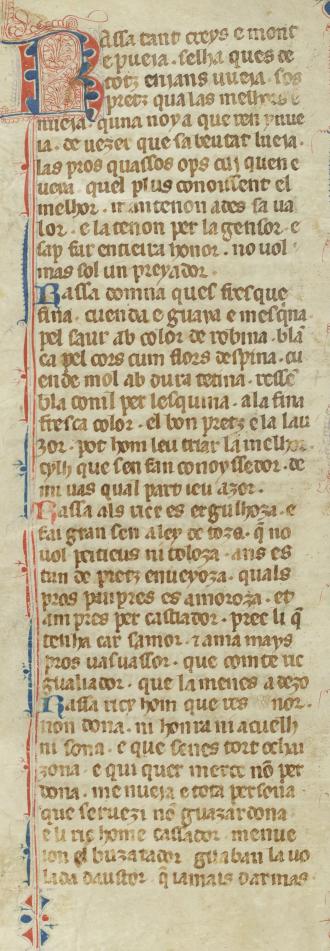 Rassa tant creys e mont
e pueia · selha ques de
totz enians vueia · sos
pretz qua las melhors e
nueia · quna no y a que ren ynue
ia · de vezer que sa beutat lueia ·
las pros quassos ops cui quen e
ueia · quel plus conoissent el
melhor · mantenon ades sa ua
lor · e la tenon per la gensor · e
sap far entieira honor · no vol
mas sol un preyador ·
Rassa domna ques fresque
fina · cuenda e guaya e mesqina
pel saur ab color de robina · blã
ca pel cors cum flors despina · cu
ende mol ab dura tetina · ressẽ
bla conil per lesquina · a la fina
fresca color · el bon pretz e la lau
zor · pot hom leu triar la melhor
cylh que sen fan conoyssedor · de
mi uas qual part ieu azor ·
Rassa als ricx es erguelhoza · e
fai gran sen a ley de toza · q̃ no
vol peitieus ni toloza · ans es
tan de pretz enueyoza · quals
pros paupres es amoroza · et
am pres per castiador · prec li q̃
tenha car samor · 7 ama mays
pros uasuassor · que comte ric
gualiador · que la menes a dezo
Rassa ricx hom que res nor
non dona · ni honra ni acuelh
ni sona · e que senes tort ochai
zona · e qui quer merce nõ per
dona · me nueia e tota persona
que seruezi nõ guazardona ·
e li ric home cassador · menue
ion el buzatador guaban la uo
lada daustor · q̃ iamais darmas ·